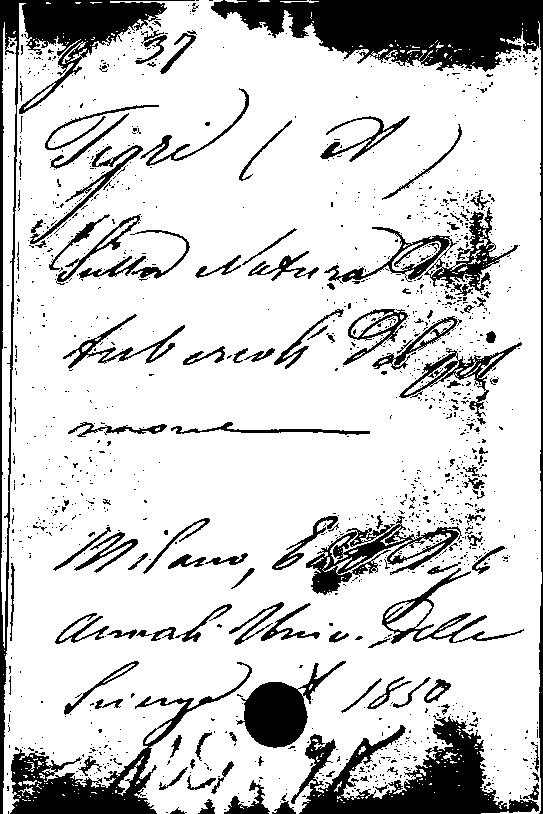 g. 37
Tigri (A)
Sulla Natura Dei
tubercoli Del pol
mone
Milano, Estr. Degli
Annali Univ. Delle
Scienze 1850